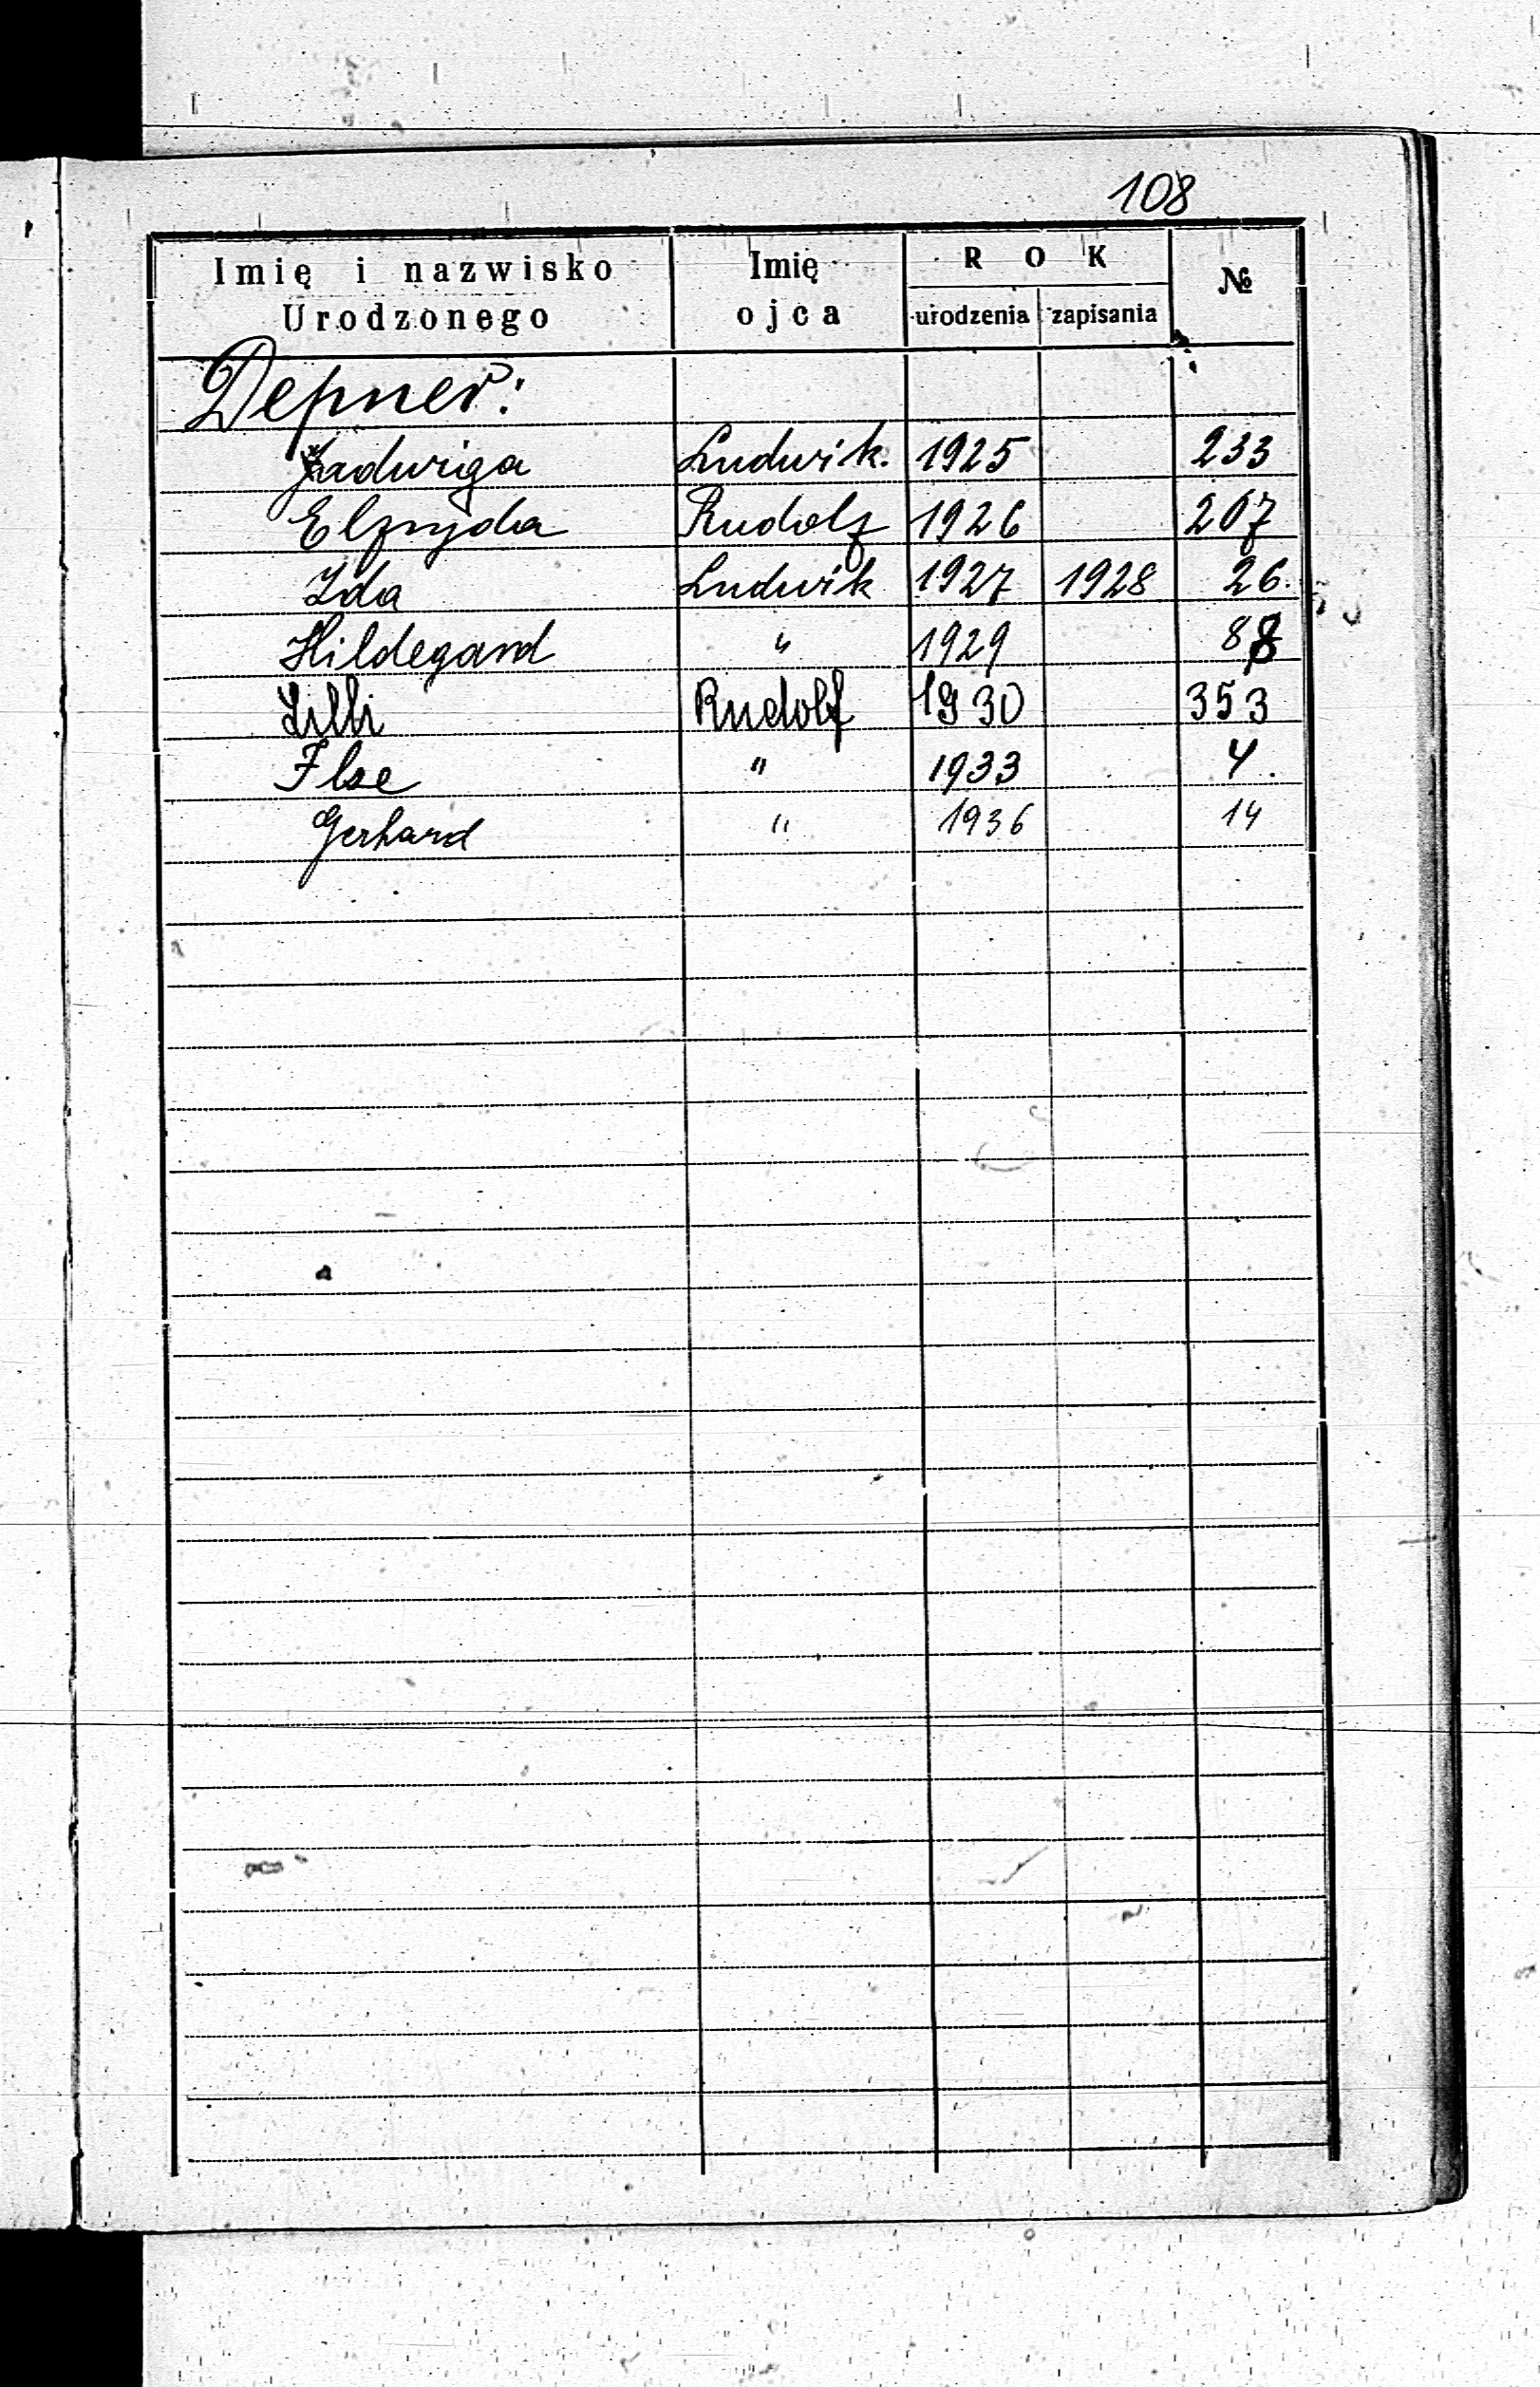 108
Imię i nazwisko Urodzonego | Imię ojca | ROK urodzenia | ROK zapisania | №
Depner:
Jadwiga | Ludwik. | 1925 | | 233
Elfryda | Rudolf | 1926 | | 207
Ida | Ludwik | 1927 | 1928 | 26.
Hildegard | " | 1929 | | 88
Lilli | Rudolf | 1930 | | 353
Ilse | " | 1933 | | 4.
Gerhard | " | 1936 | | 14